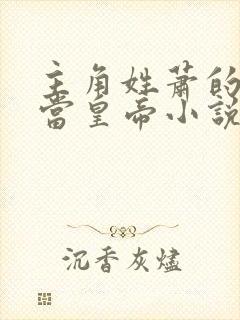 主角姓萧的
当皇帝小说
沉香灰燼